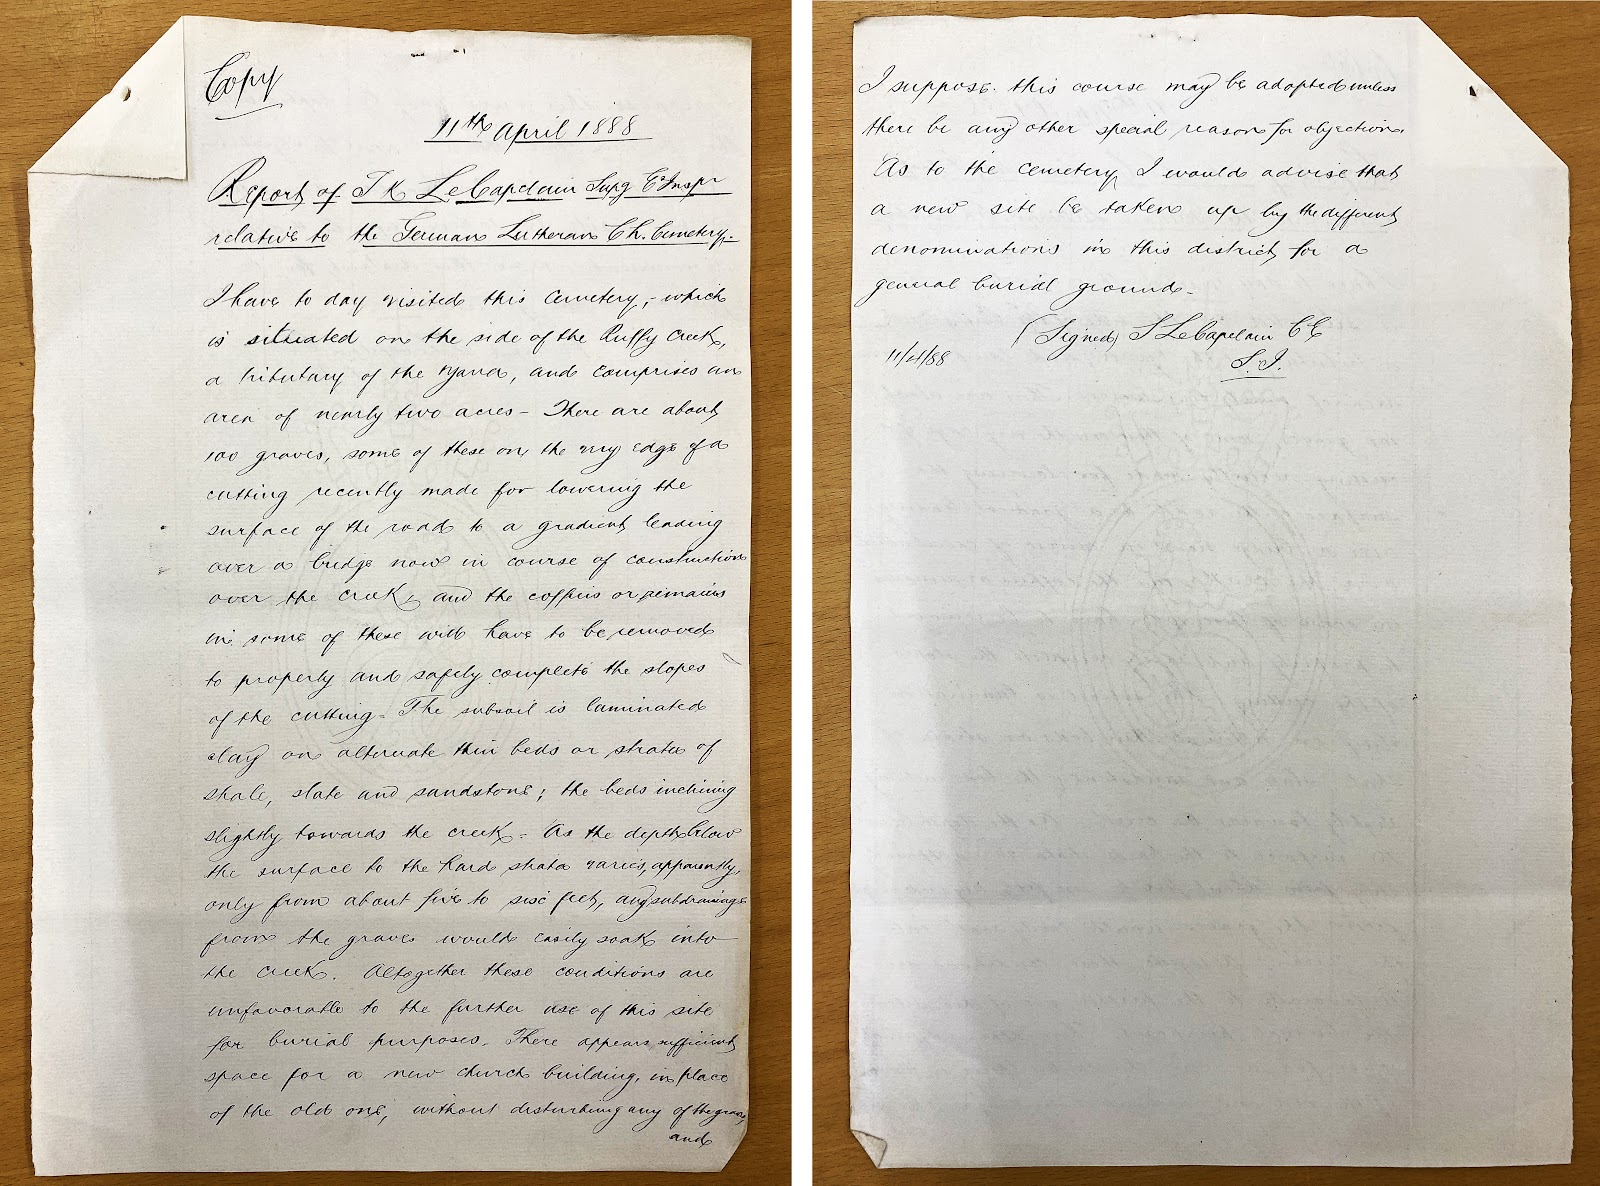 Copy
11th April 1888
Report of T K Le Capelain Supg Er Inspr
relative to the German Lutheran Ch. Cemetery.-
I have to day visited this Cemetery,- which
is situated on the side of the Ruffy Creek,
a tributary of the Yarra, and comprises an
area of nearly two acres - There are about
100 graves, some of these on the very edge of a
cutting recently made for lowering the
surface of the road to a gradient leading
over a bridge now in course of construction
over the creek, and the coffins or remains
in some of these will have to be removed
to properly and safely complete the slopes
of the cutting - The subsoil is laminated
clay on alternate thin beds or strata of
shale, slate and sandstone; the beds inclining
slightly towards the creek - As the depth below
the surface to the hard strata varies, apparently,
only from about five to six feet, any subdrainage
from the graves would easily soak into
the creek. Altogether these conditions are
unfavorable to the further use of this site
for burial purposes. There appears sufficient
space for a new church building, in place
of the old one, without disturbing any of the graves,
and
I suppose this course may be adopted unless
there be any other special reason for objection.
As to the cemetery I would advise that
a new site be taken up by the different
denominations in this district, for a
general burial ground -
(Signed) T Le Capelain CE
11/4/88 S.I.